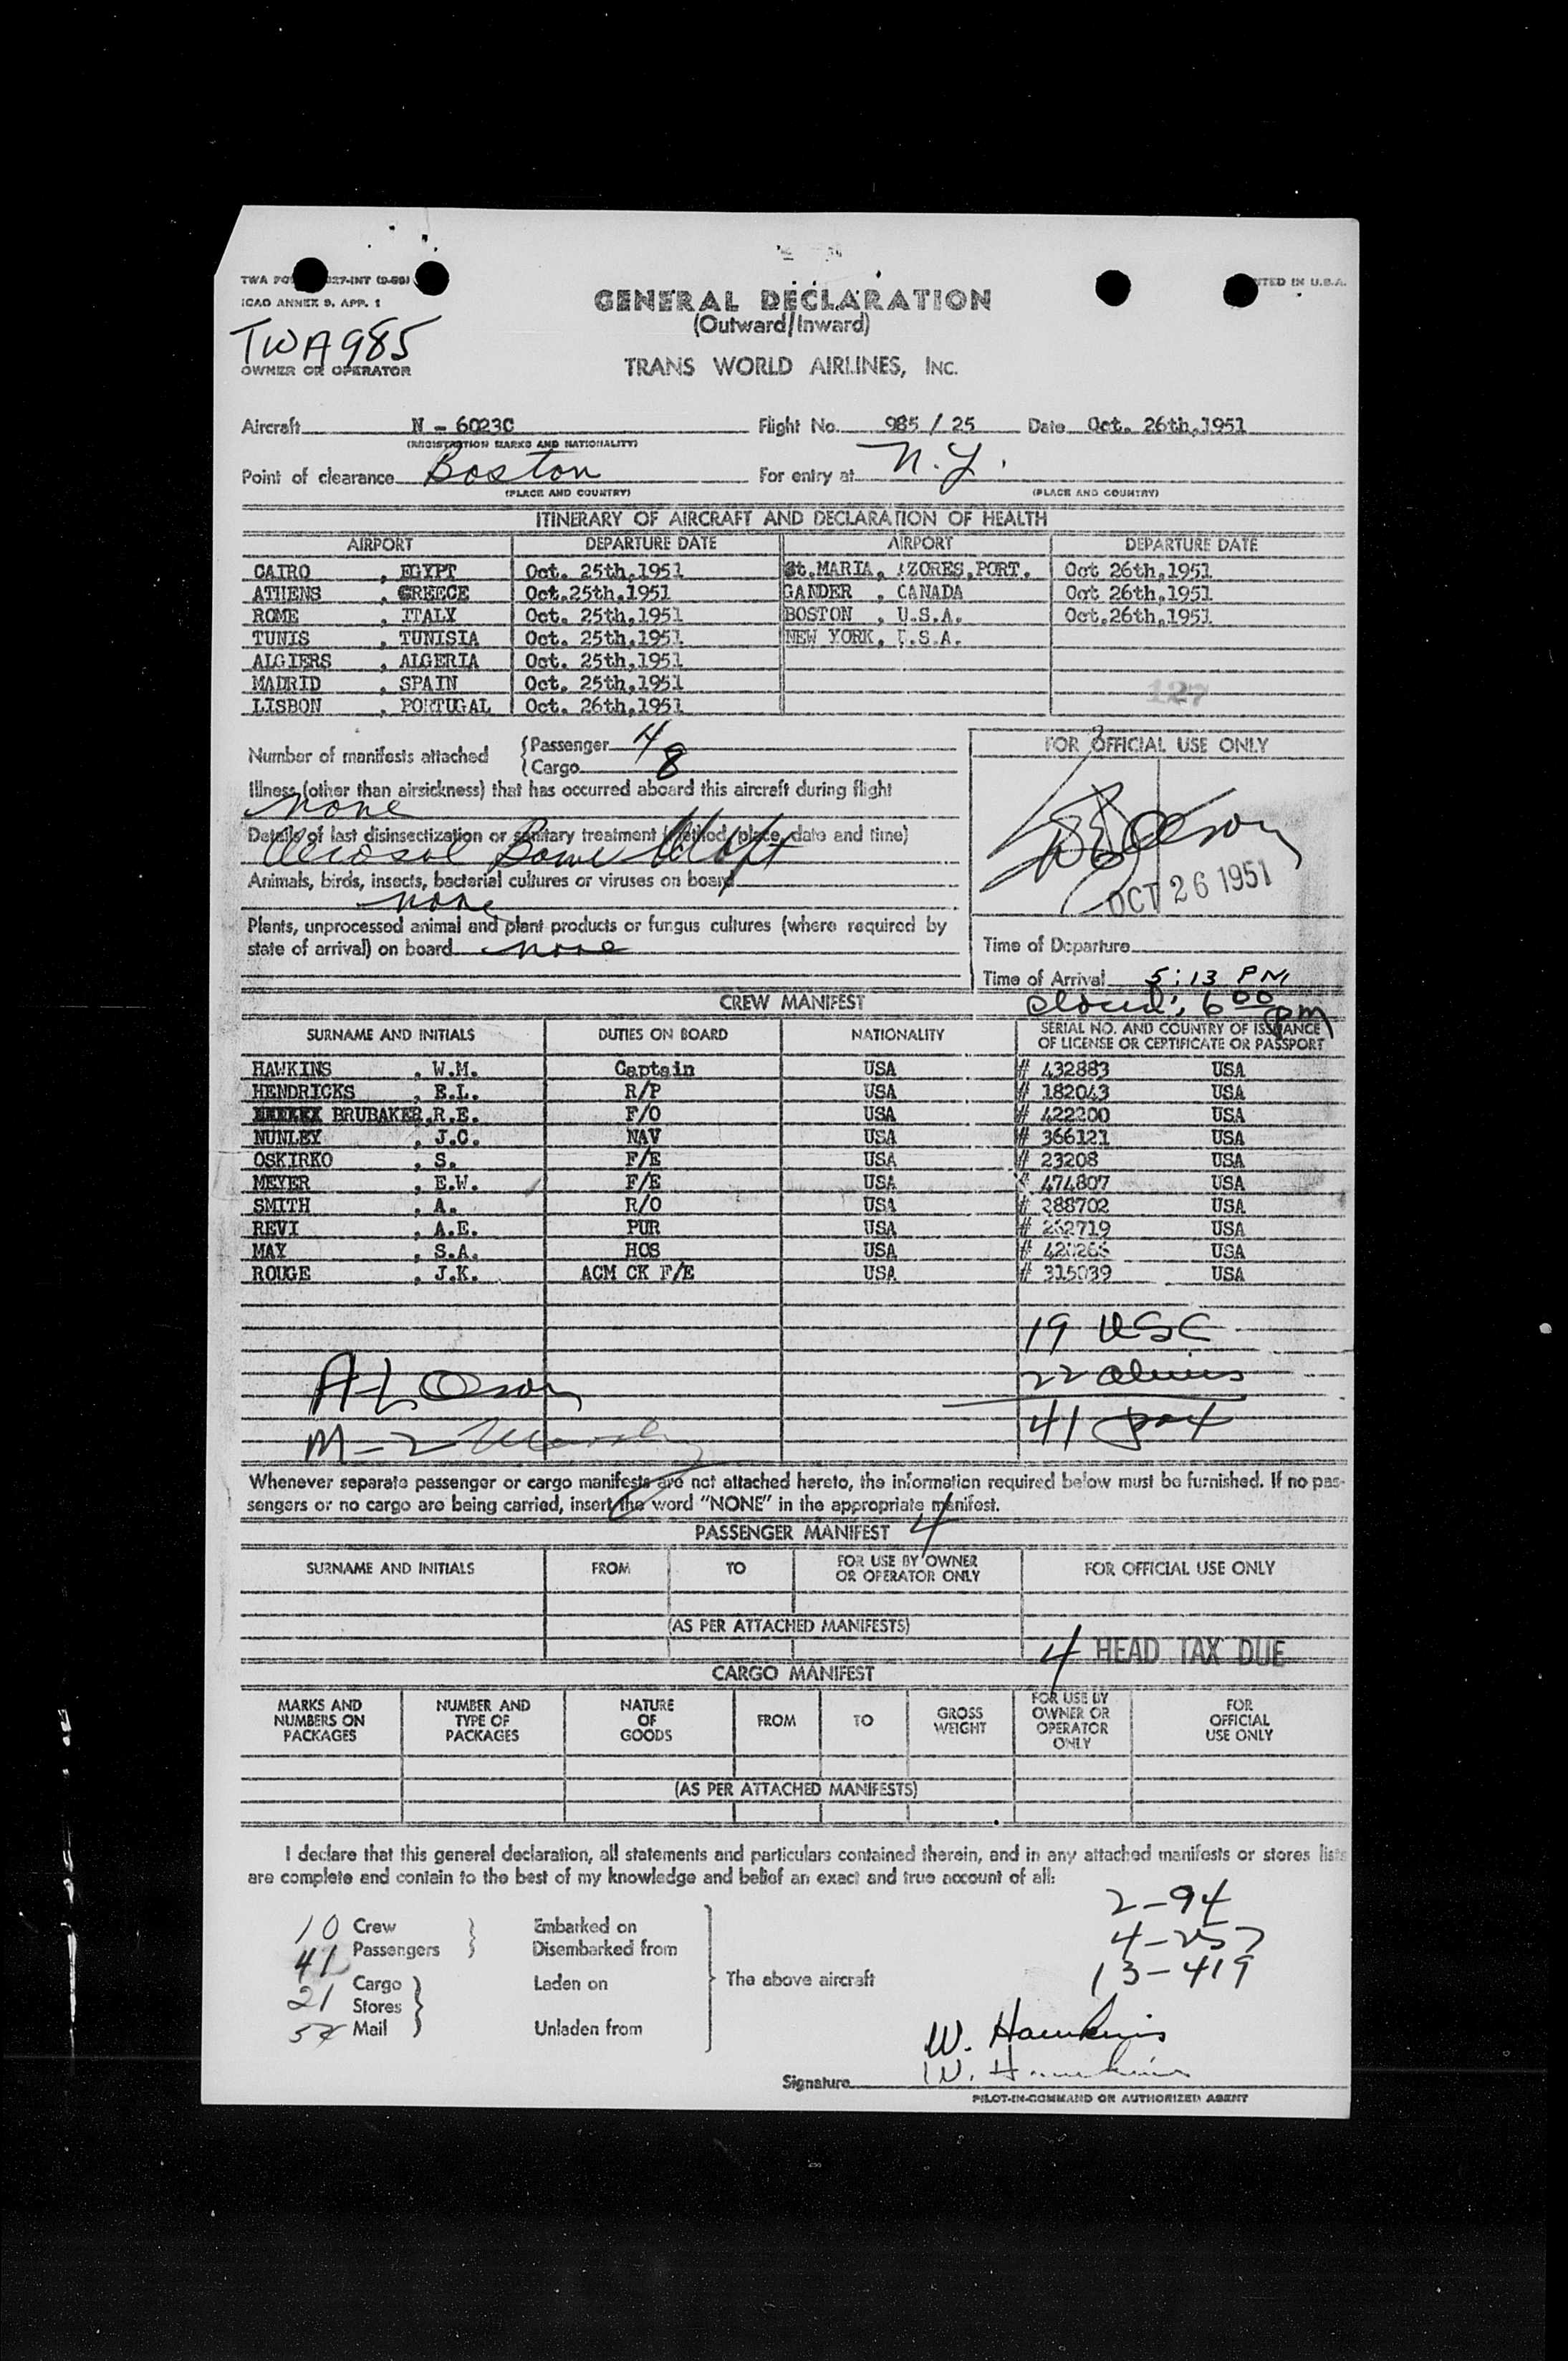 TWA 27-INT
ICAO ANNEX 9, APP. 1
TED IN U.S.A.
GENERAL DECLARATION
(Outward/Inward)
TRANS WORLD AIRLINES, INC.
TWA 985
OWNER OR OPERATOR
Aircraft N - 6023C Flight No. 985 / 25 Date Oct. 26th,1951
(REGISTRATION MARKS AND NATIONALITY)
Point of clearance Boston For entry at N.Y.
(PLACE AND COUNTRY) (PLACE AND COUNTRY)
ITINERARY OF AIRCRAFT AND DECLARATION OF HEALTH
AIRPORT DEPARTURE DATE AIRPORT DEPARTURE DATE
CAIRO , EGYPT Oct. 25th,1951 St.MARIA, AZORES,PORT. Oct 26th,1951
ATHENS , GREECE Oct.25th,1951 GANDER , CANADA Oct 26th,1951
ROME , ITALY Oct. 25th,1951 BOSTON , U.S.A. Oct.26th,1951
TUNIS , TUNISIA Oct. 25th,1951 NEW YORK, U.S.A.
ALGIERS , ALGERIA Oct. 25th,1951
MADRID , SPAIN Oct. 25th,1951
LISBON , PORTUGAL Oct. 26th,1951
127
Number of manifests attached
Passenger 4
Cargo 8
FOR OFFICIAL USE ONLY
Illness (other than airsickness) that has occurred aboard this aircraft during flight
none
Details of last disinsectization or sanitary treatment (method, place, date and time)
Aerosol
Animals, birds, insects, bacterial cultures or viruses on board
none
OCT 26 1951
Plants, unprocessed animal and plant products or fungus cultures (where required by
state of arrival) on board none
Time of Departure
Time of Arrival 5:13 PM
closed: 6 00 pm
CREW MANIFEST
SURNAME AND INITIALS DUTIES ON BOARD NATIONALITY SERIAL NO. AND COUNTRY OF ISSUANCE
OF LICENSE OR CERTIFICATE OR PASSPORT
HAWKINS , W.M. Captain USA # 432883 USA
HENDRICKS , E.L. R/P USA # 182043 USA
BRUBAKER,R.E. F/O USA # 422200 USA
NUNLEY , J.C. NAV USA # 366121 USA
OSKIRKO , S. F/E USA # 23208 USA
MEYER , E.W. F/E USA # 474807 USA
SMITH , A. R/O USA # 288702 USA
REVI , A.E. PUR USA # 262719 USA
MAY , S.A. HOS USA # USA
ROUGE , J.K. ACM CK F/E USA # 315039 USA
19 USC
22 aliens
41 pax
M-2
Whenever separate passenger or cargo manifests are not attached hereto, the information required below must be furnished. If no pas-
sengers or no cargo are being carried, insert the word "NONE" in the appropriate manifest.
PASSENGER MANIFEST 4
SURNAME AND INITIALS FROM TO FOR USE BY OWNER
OR OPERATOR ONLY FOR OFFICIAL USE ONLY
(AS PER ATTACHED MANIFESTS)
4 HEAD TAX DUE
CARGO MANIFEST
MARKS AND
NUMBERS ON
PACKAGES
NUMBER AND
TYPE OF
PACKAGES
NATURE
OF
GOODS
FROM
TO
GROSS
WEIGHT
FOR USE BY
OWNER OR
OPERATOR
ONLY
FOR
OFFICIAL
USE ONLY
(AS PER ATTACHED MANIFESTS)
I declare that this general declaration, all statements and particulars contained therein, and in any attached manifests or stores lists
are complete and contain to the best of my knowledge and belief an exact and true account of all:
2-94
4-257
13-419
10 Crew Embarked on
41 Passengers Disembarked from
21 Cargo Laden on The above aircraft
Stores
Mail Unladen from
W. Hawkins
Signature W. Hawkins
PILOT-IN-COMMAND OR AUTHORIZED AGENT